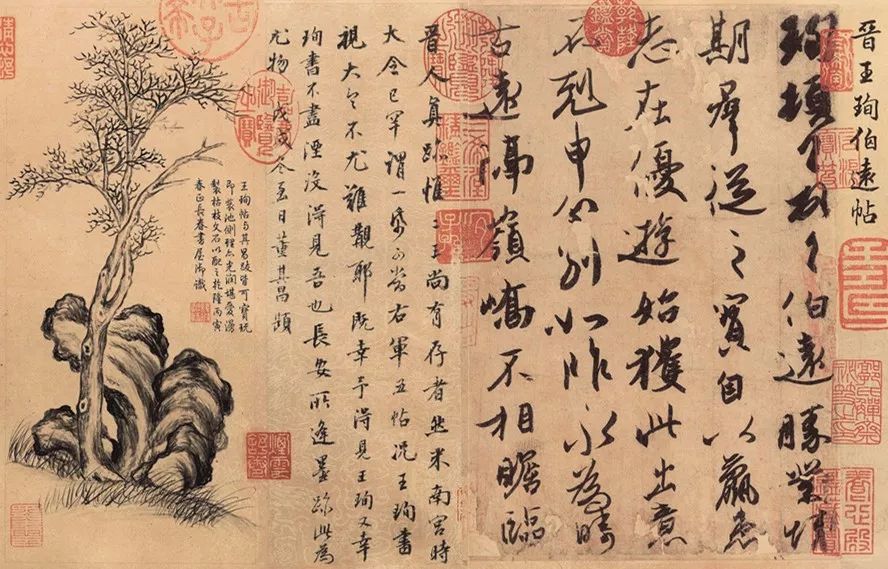 晉王珣伯遠帖
珣頓首頓首伯遠勝業情
期群從之寶自以羸患
志在優遊始獲此出意
不剋申分別如昨永為疇
古遠隔嶺嶠不相瞻臨
晉人真跡惟二王尚有存者然米南宮時
大令已罕謂一紙可當右軍五帖況王珣書
視大令不尤難覯耶既幸予得見王珣又幸
珣書不盡湮沒得見吾也長安所逢墨跡此為
尤物 戊戌冬至日董其昌題
王珣帖與其昌跋皆可寶玩
即裝池側理亦光潤堪愛漫
製枯枝文石以配之乾隆丙寅
春正長春書屋御識
乾隆鑑賞